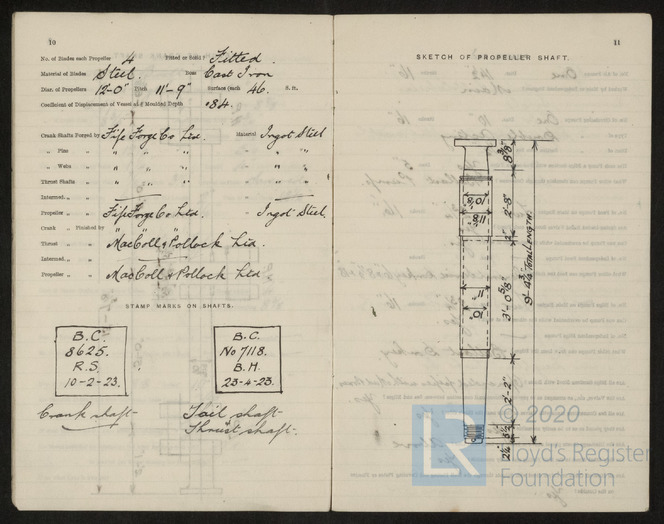 10
No. of Blades each Propeller 4 Fitted or Solid? Fitted.
Material of Blades Steel. Boss Cast Iron
Diar. of Propellers 12'-0" Pitch 11'-9" Surface (each 46. S. ft.
Coefficient of Displacement of Vessel at ¾ Moulded Depth .84.
Crank Shafts Forged by Fife Forge Co Ltd. Material Ingot Steel
" Pins " " " " " "
" Webs " " " " " "
Thrust Shafts " " " " " "
Intermed. " "
Propeller " " Fife Forge Co Ltd. " Ingot Steel.
Crank " Finished by
Thrust " " MacColl & Pollock Ltd.
Intermed. " "
Propeller " " MacColl & Pollock Ltd
STAMP MARKS ON SHAFTS.
B.C.
8625.
R.S.
10-2-23.
B.C.
No 7118.
B.H.
23-4-23.
Crank shaft
Tail shaft
Thrust shaft.
11
SKETCH OF PROPELLER SHAFT.
2'-8"
2"
2'-2"
TOTAL LENGTH.
© 2020
LR
Lloyd's Register
Foundation